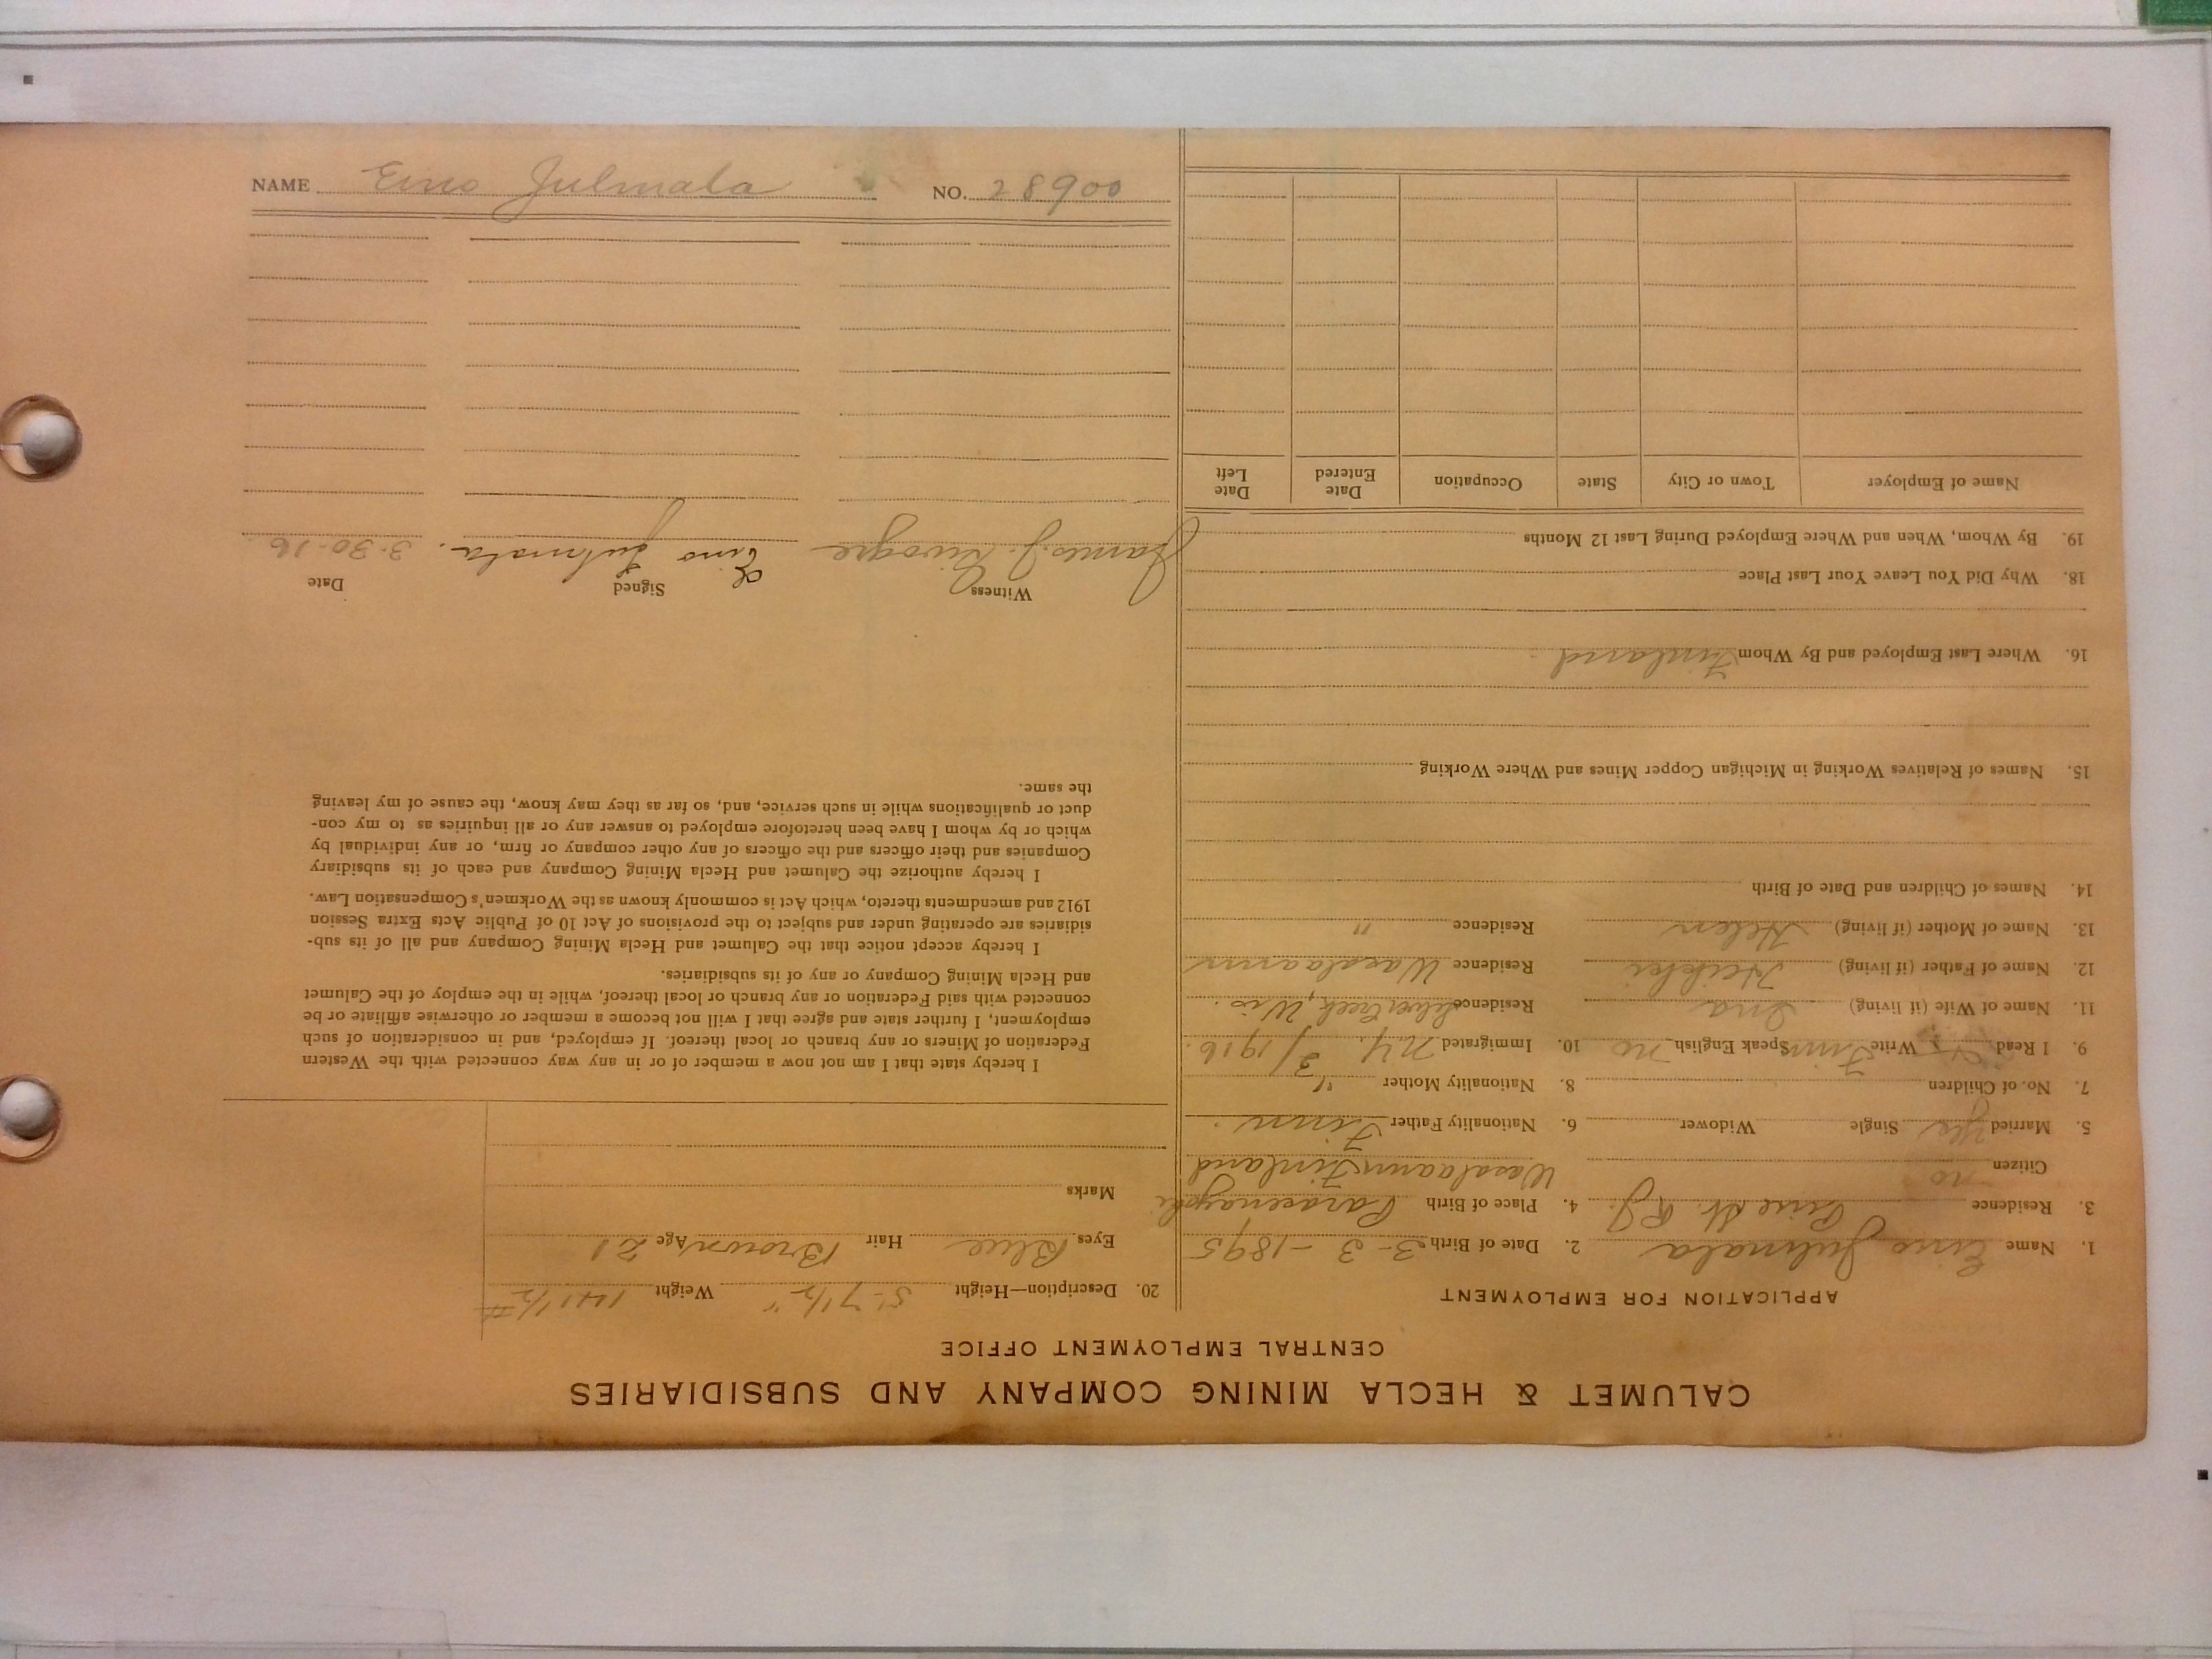 CALUMET & HECLA MINING COMPANY AND SUBSIDIARIES
CENTRAL EMPLOYMENT OFFICE
APPLICATION FOR EMPLOYMENT
1. Name Eino Julmala 2. Date of Birth 3-3-1895
3. Residence Pine St. R.J. 4. Place of Birth
Citizen no Finland
5. Married yes Single Widower 6. Nationality Father Finn.
7. No. of Children 8. Nationality Mother "
9. I Read Write Finn Speak English no 10. Immigrated N.Y. 3/1916.
11. Name of Wife (if living) Ina Residence Silver Creek, Wis.
12. Name of Father (if living) Heikki Residence Wasalaani
13. Name of Mother (if living) Helen Residence "
14. Names of Children and Date of Birth
15. Names of Relatives Working in Michigan Copper Mines and Where Working
16. Where Last Employed and By Whom Finland
18. Why Did You Leave Your Last Place
19. By Whom, When and Where Employed During Last 12 Months
Name of Employer Town or City State Occupation Date Entered Date Left
20. Description—Height 5'-7 1/2" Weight 141 1/2 #
Eyes Blue Hair Brown Age 21
Marks
I hereby state that I am not now a member of or in any way connected with the Western
Federation of Miners or any branch or local thereof. If employed, and in consideration of such
employment, I further state and agree that I will not become a member or otherwise affiliate or be
connected with said Federation or any branch or local thereof, while in the employ of the Calumet
and Hecla Mining Company or any of its subsidiaries.
I hereby accept notice that the Calumet and Hecla Mining Company and all of its sub-
sidiaries are operating under and subject to the provisions of Act 10 of Public Acts Extra Session
1912 and amendments thereto, which Act is commonly known as the Workmen's Compensation Law.
I hereby authorize the Calumet and Hecla Mining Company and each of its subsidiary
Companies and their officers and the officers of any other company or firm, or any individual by
which or by whom I have been heretofore employed to answer any or all inquiries as to my con-
duct or qualifications while in such service, and, so far as they may know, the cause of my leaving
the same.
Witness Signed Date
James J. Eino Julmala. 3-30-16.
NAME Eino Julmala NO. 28900